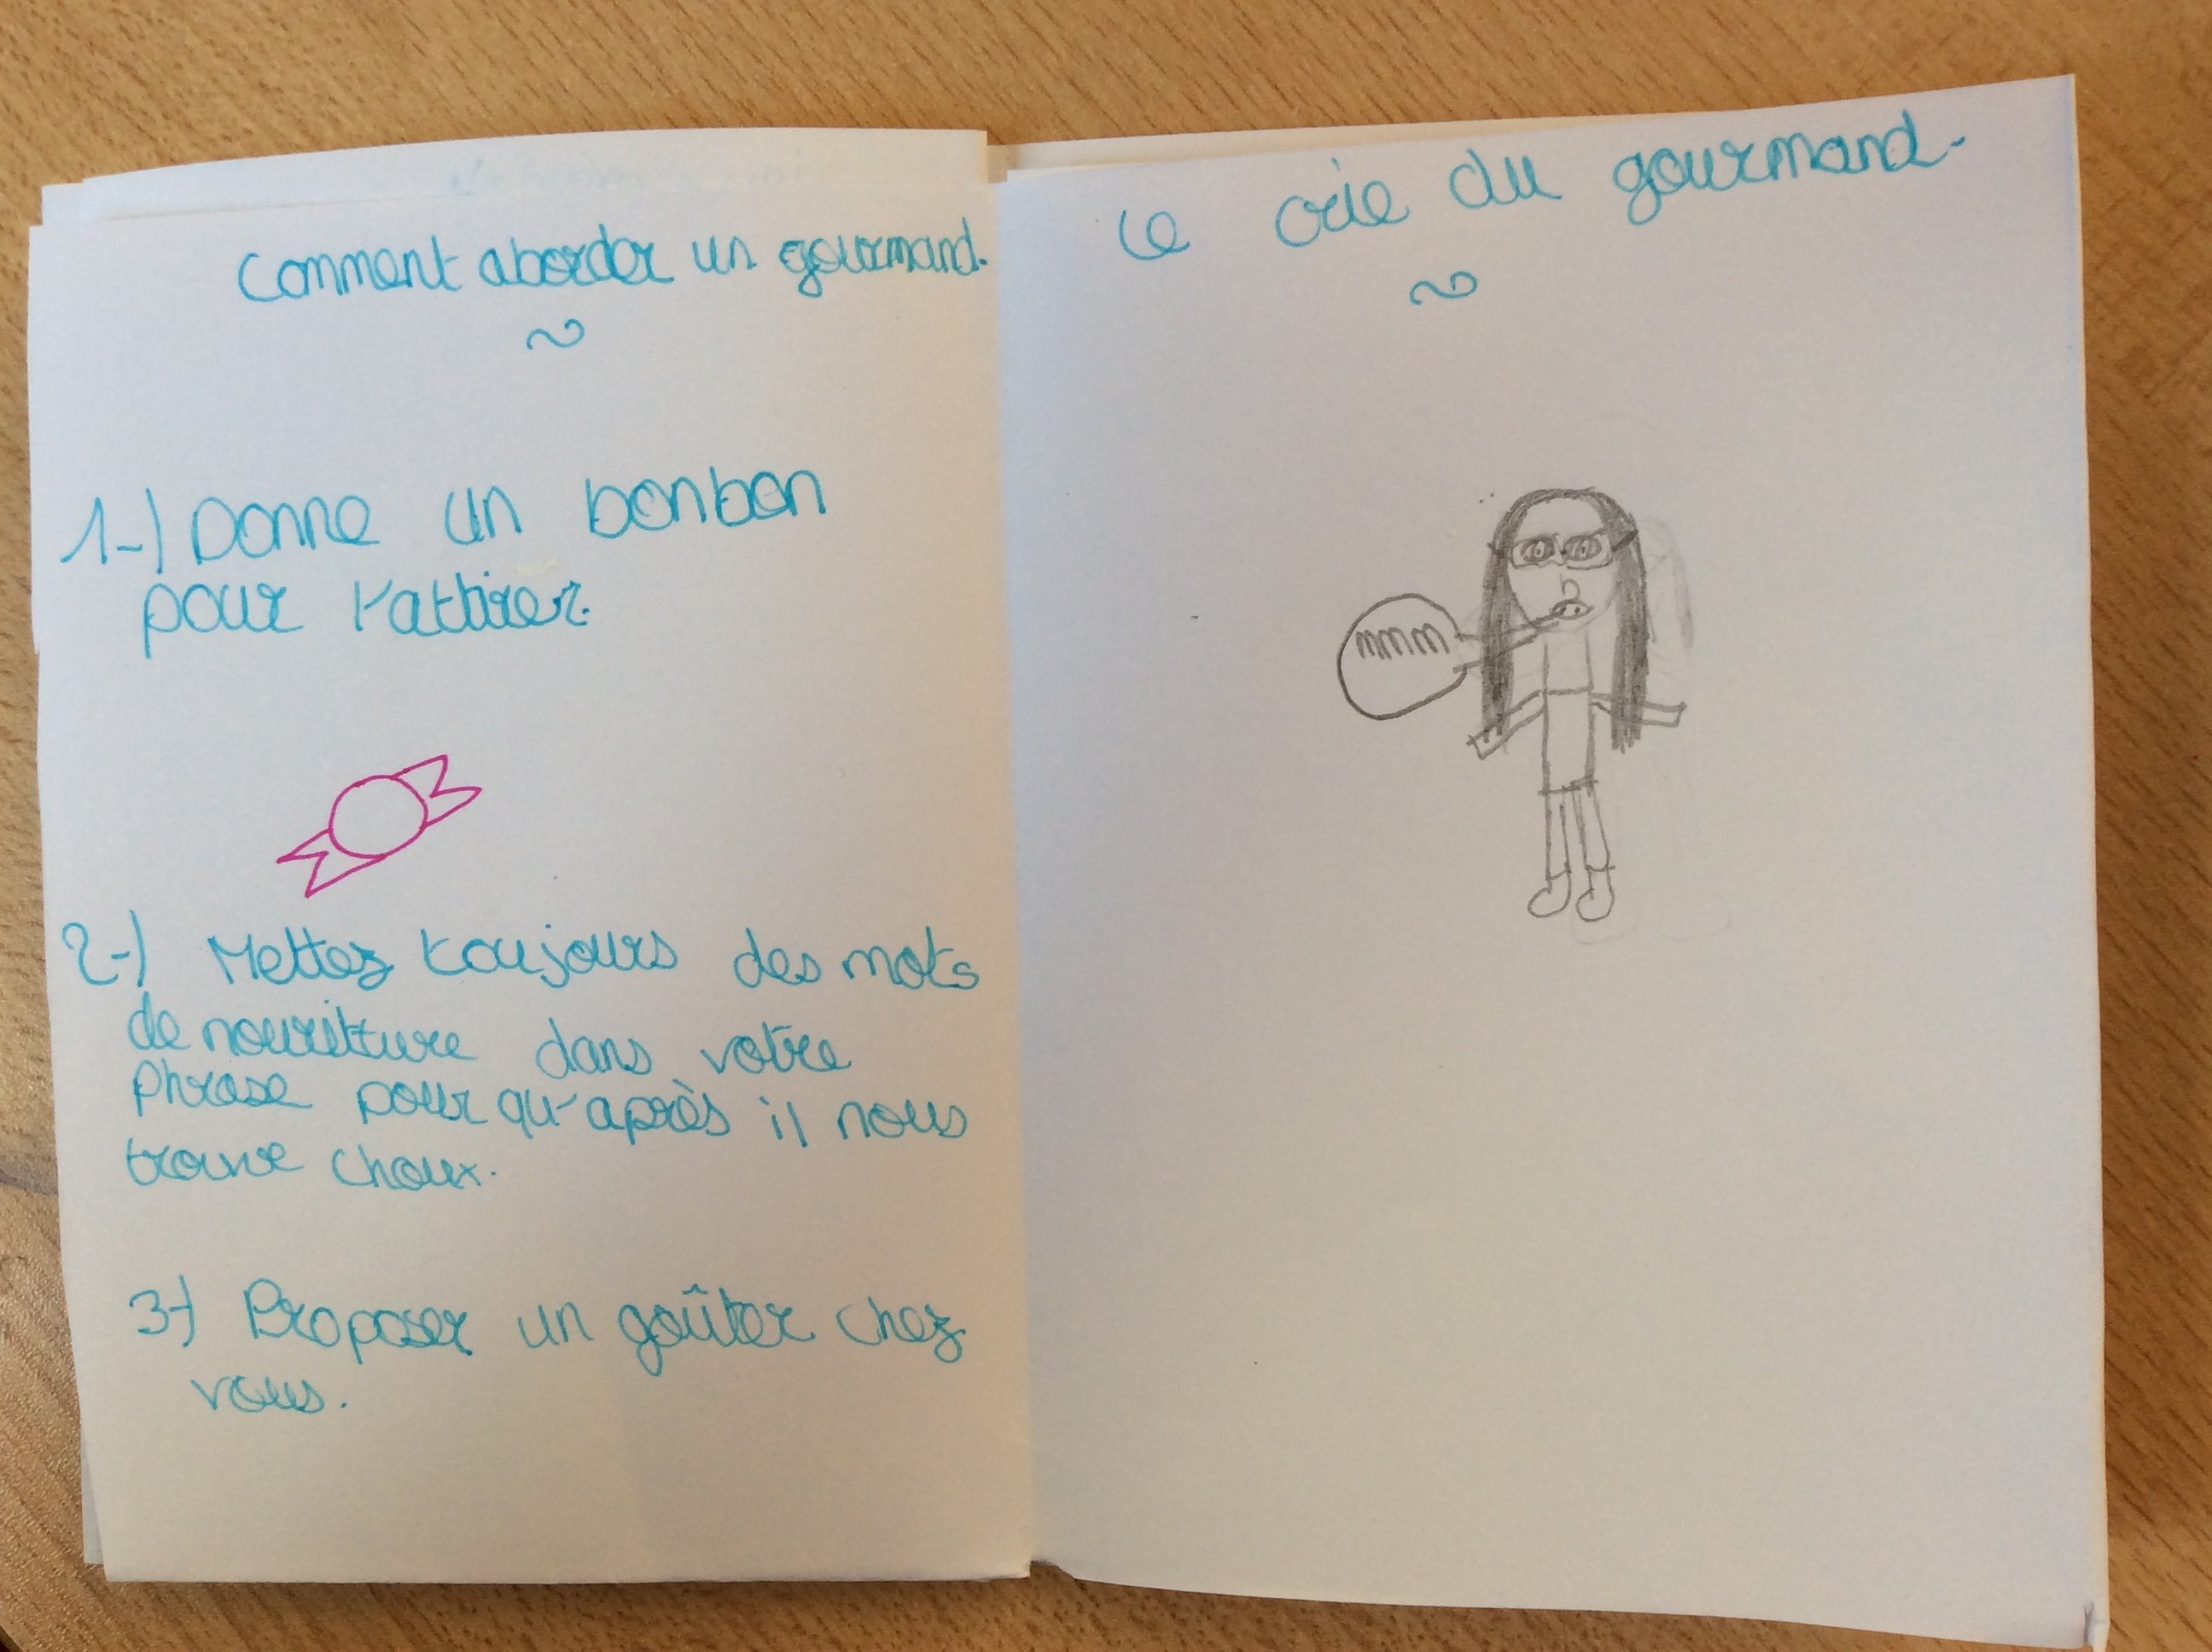 Comment aborder un gourmand.
1-) Donne un bonbon
pour l'attirer.
2-) Mettez toujours des mots
de nouritture dans votre
phrase pour qu'après il nous
trouve choux.
3-) Proposer un goûter chez
vous.
Le crie du gourmand.
mmm